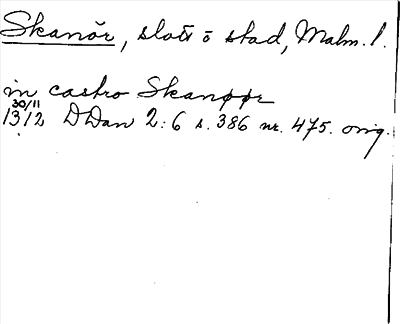 Skanör, slott o stad, Malm. l.
in castro Skanøør
30/11
1312 DDan 2:6 s. 386 nr. 475. orig.